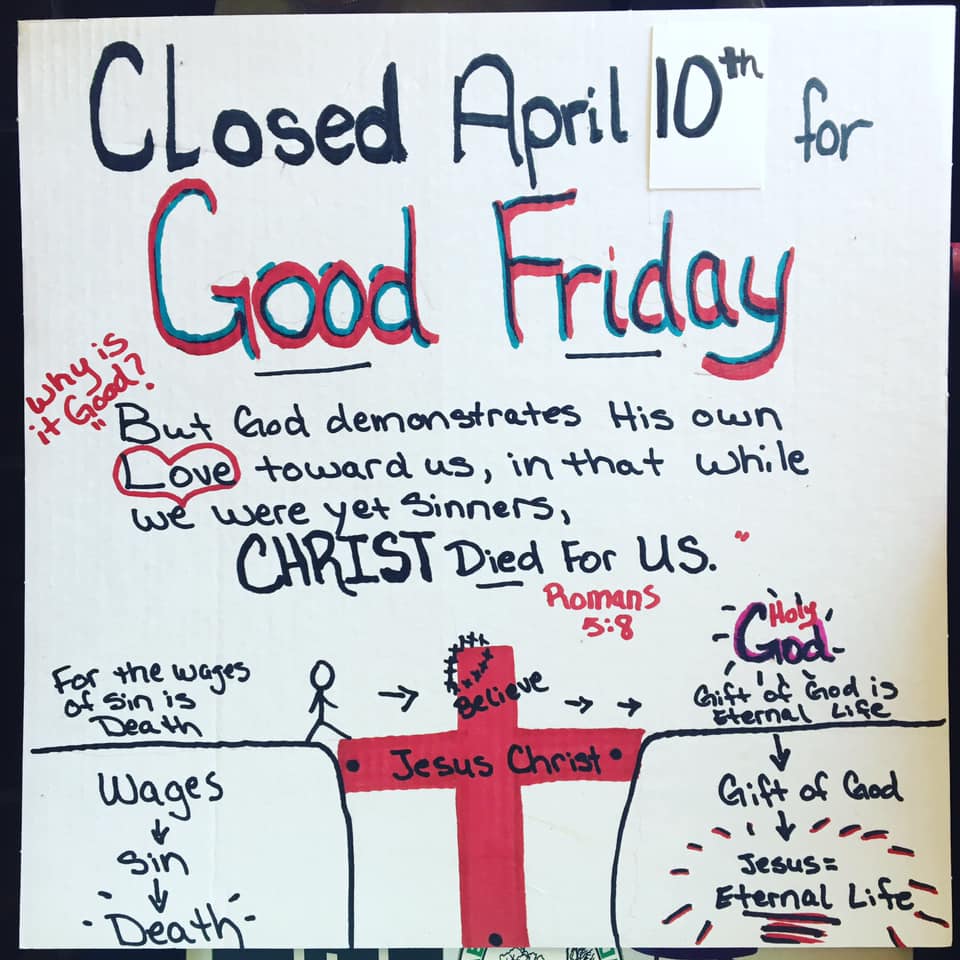 CLosed April 10th for
Good Friday
Why is
it Good?
"But God demonstrates His own
Love toward us, in that while
we were yet Sinners,
CHRIST Died For US."
Romans
5:8
For the wages
of Sin is
Death
Believe
Jesus Christ
Holy
God
Gift of God is
Eternal Life
Wages
Sin
Death
Gift of God
Jesus =
Eternal Life